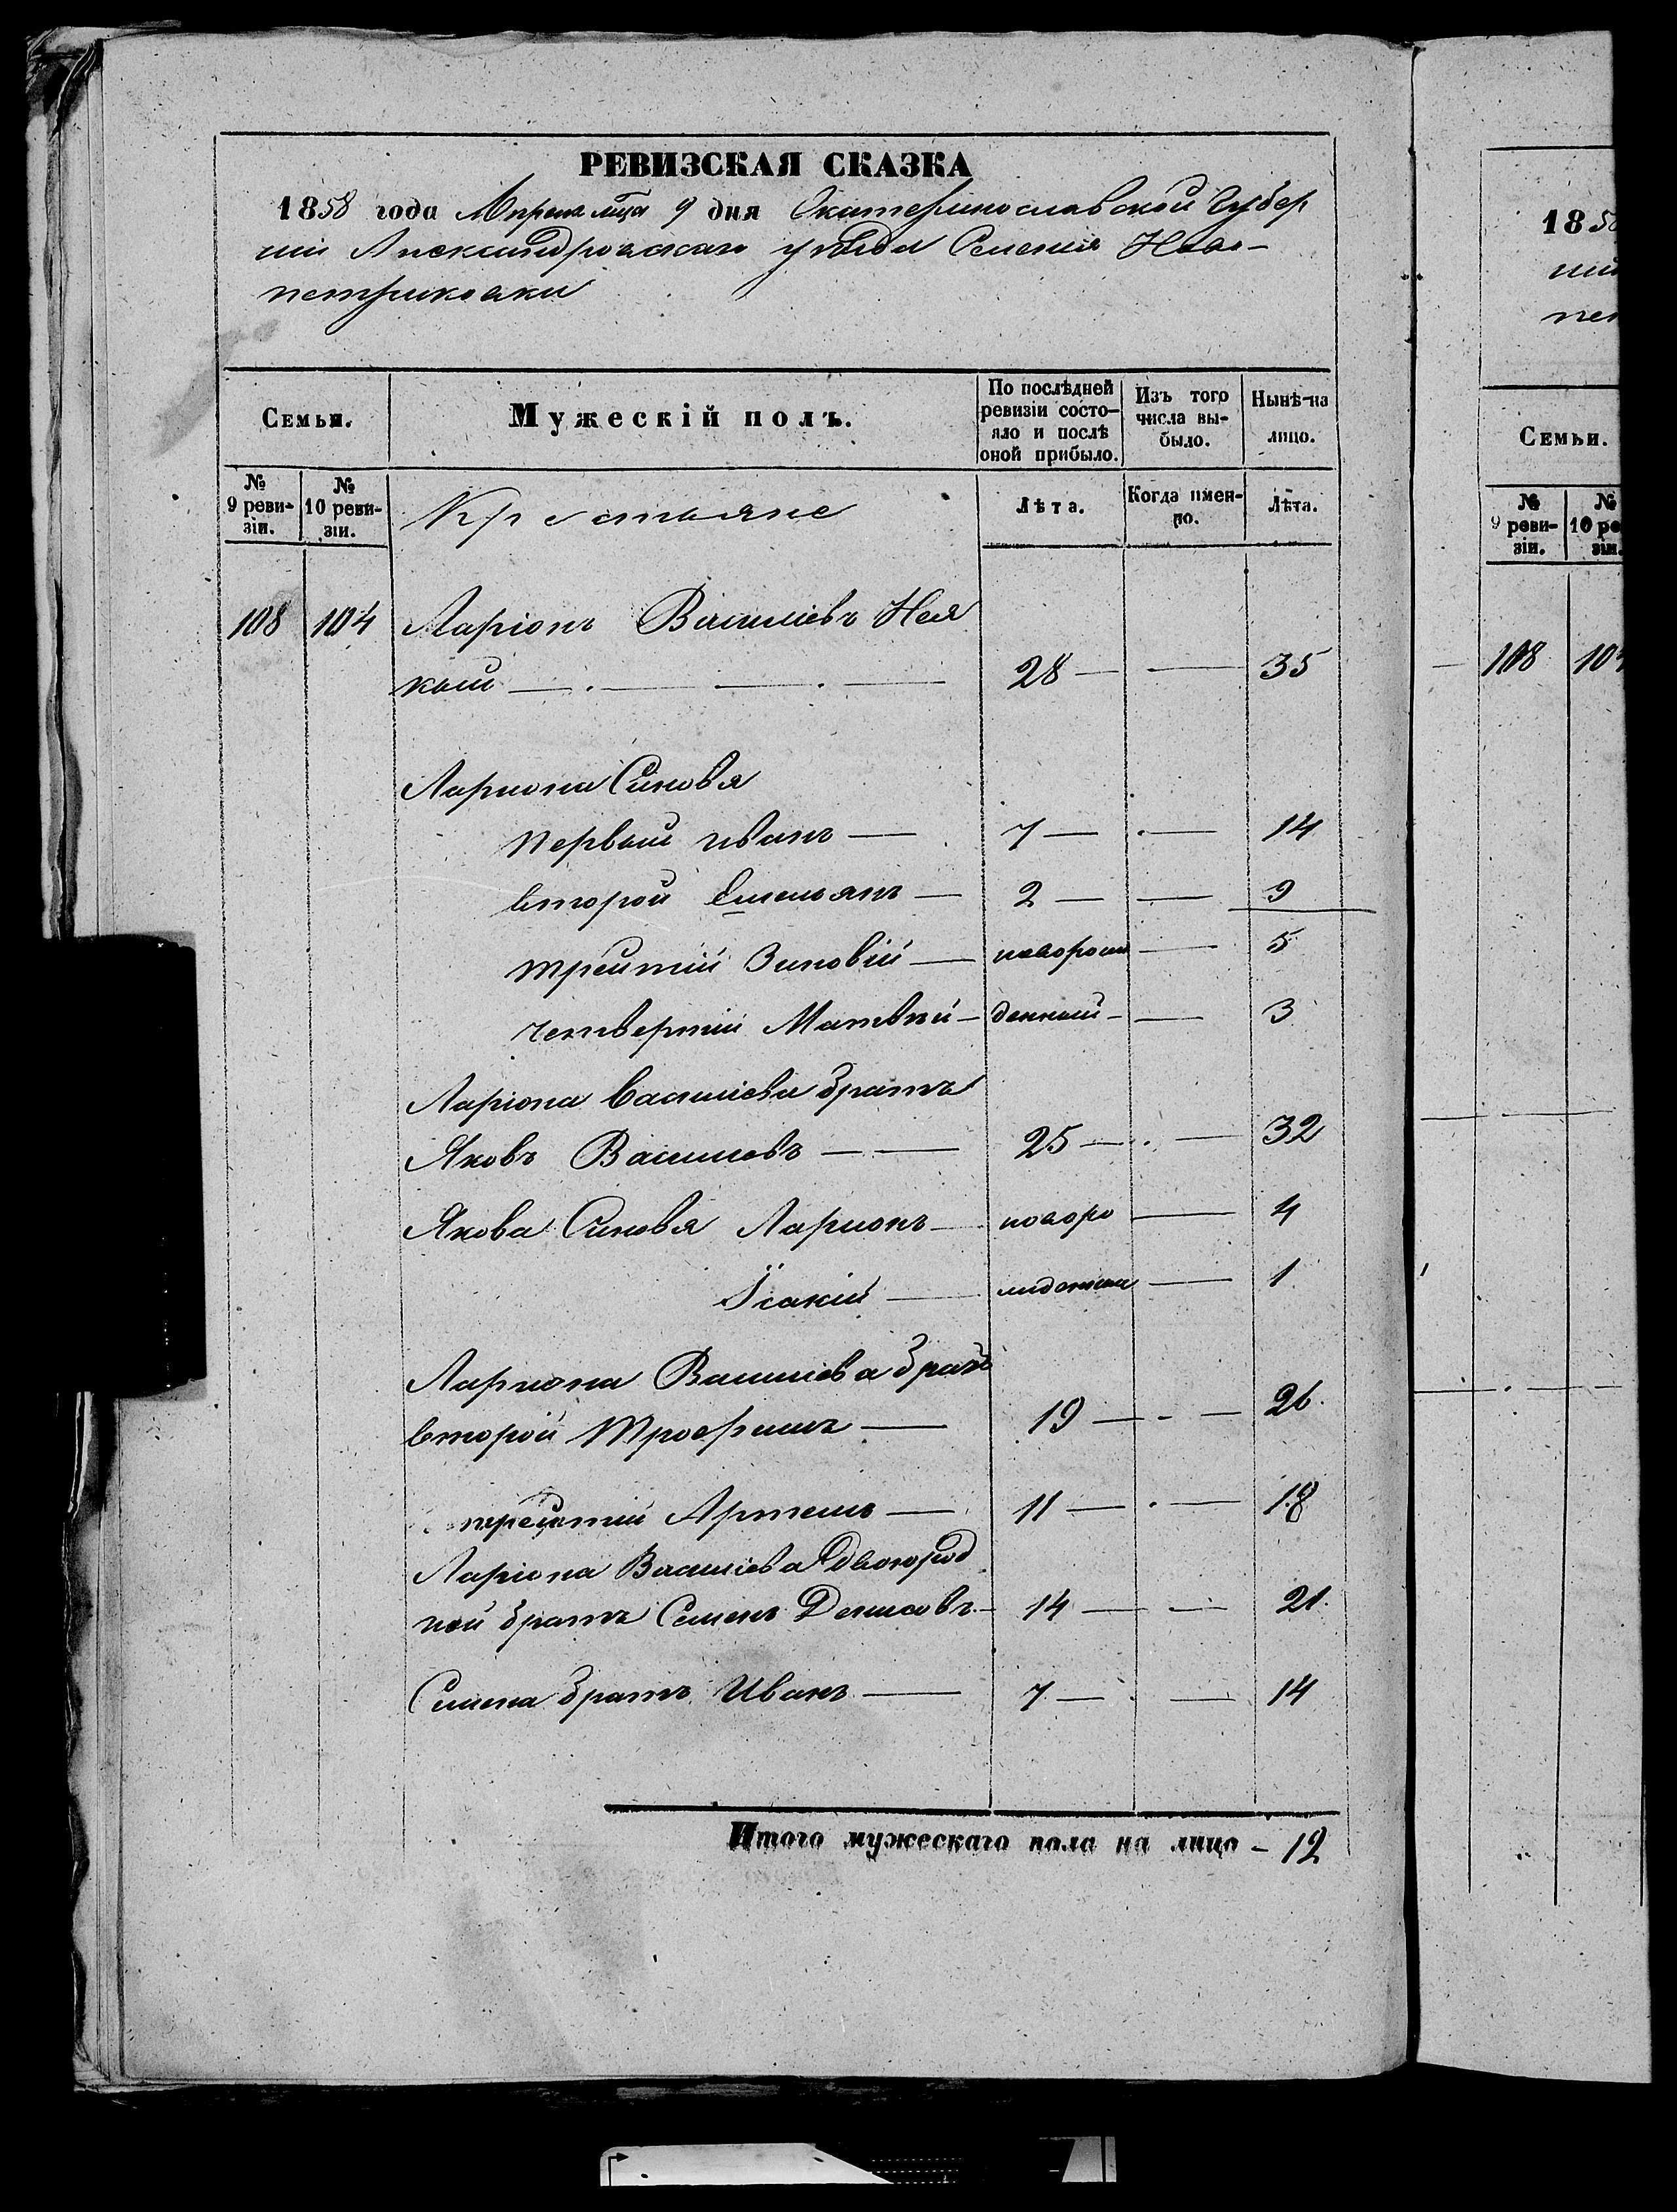 РЕВИЗСКАЯ СКАЗКА
1858 года Апреля мца 9 дня Екатеринославской Губер
нии Александровскаго уѣзда Селения Ново-
петриковки
Семьи.
Мужескій полъ.
По послѣдней
ревизіи состо-
яло и послѣ
оной прибыло.
Изъ того
числа вы-
было.
Нынѣ-на
лицо.
№
9 реви-
зіи.
№
10 реви-
зіи.
Крестьяне
Лѣта.
Когда имен-
но.
Лѣта.
108 104 Ларіонъ Василіевъ Нея
кий 28 35
Лариона Синовя
первый иванъ 7 14
второй Емельянъ 2 9
трейтій Зиновій новорож 5
четвертій Матвѣй денный 3
Ларіона Василіева братъ
Яковъ Василиевъ 25 32
Якова Синовя Ларионъ новоро 4
Їсакій жденные 1
Лариона Василіева братъ
второй Трофимъ 19 26.
трейтій Артемъ 11 18
Ларіона Василіева Двоюрод
ной братъ Семенъ Денисовъ 14 21.
Семена братъ Иванъ 7 14
Итого мужескаго пола на лицо - 12
1858
ний
пет
Семьи.
№
9 реви-
зіи.
№
10 ре
зіи.
108 104